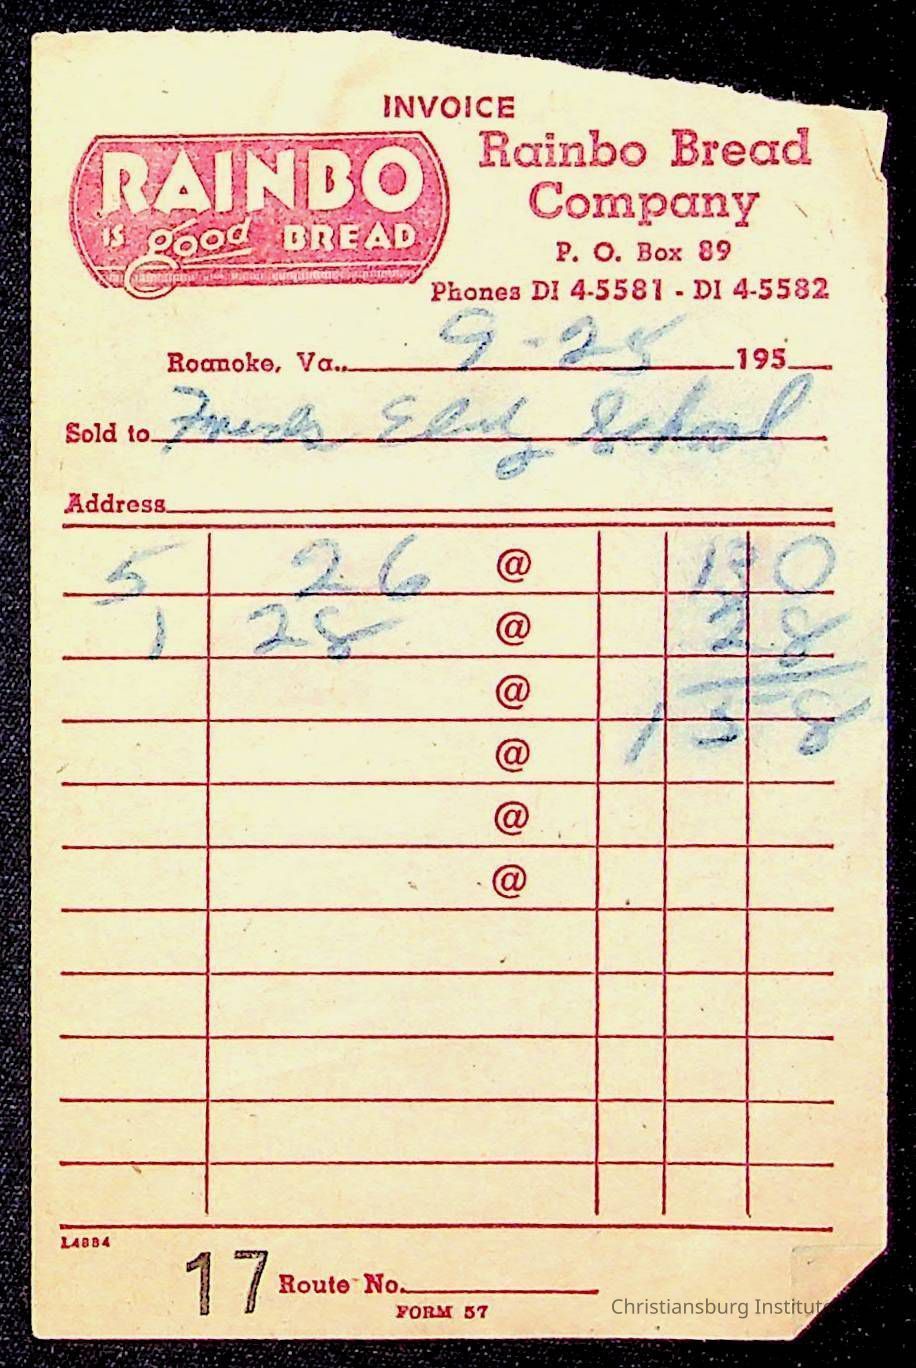 INVOICE
RAINBO
IS good BREAD
Rainbo Bread
Company
P. O. Box 89
Phones DI 4-5581 - DI 4-5582
Roanoke, Va. 9-25 195
Sold to School
Address
5 26 @ 130
1 28 @ 28
@ 158
@
@
@
L4884
17 Route No.
FORM 57
Christiansburg Institute